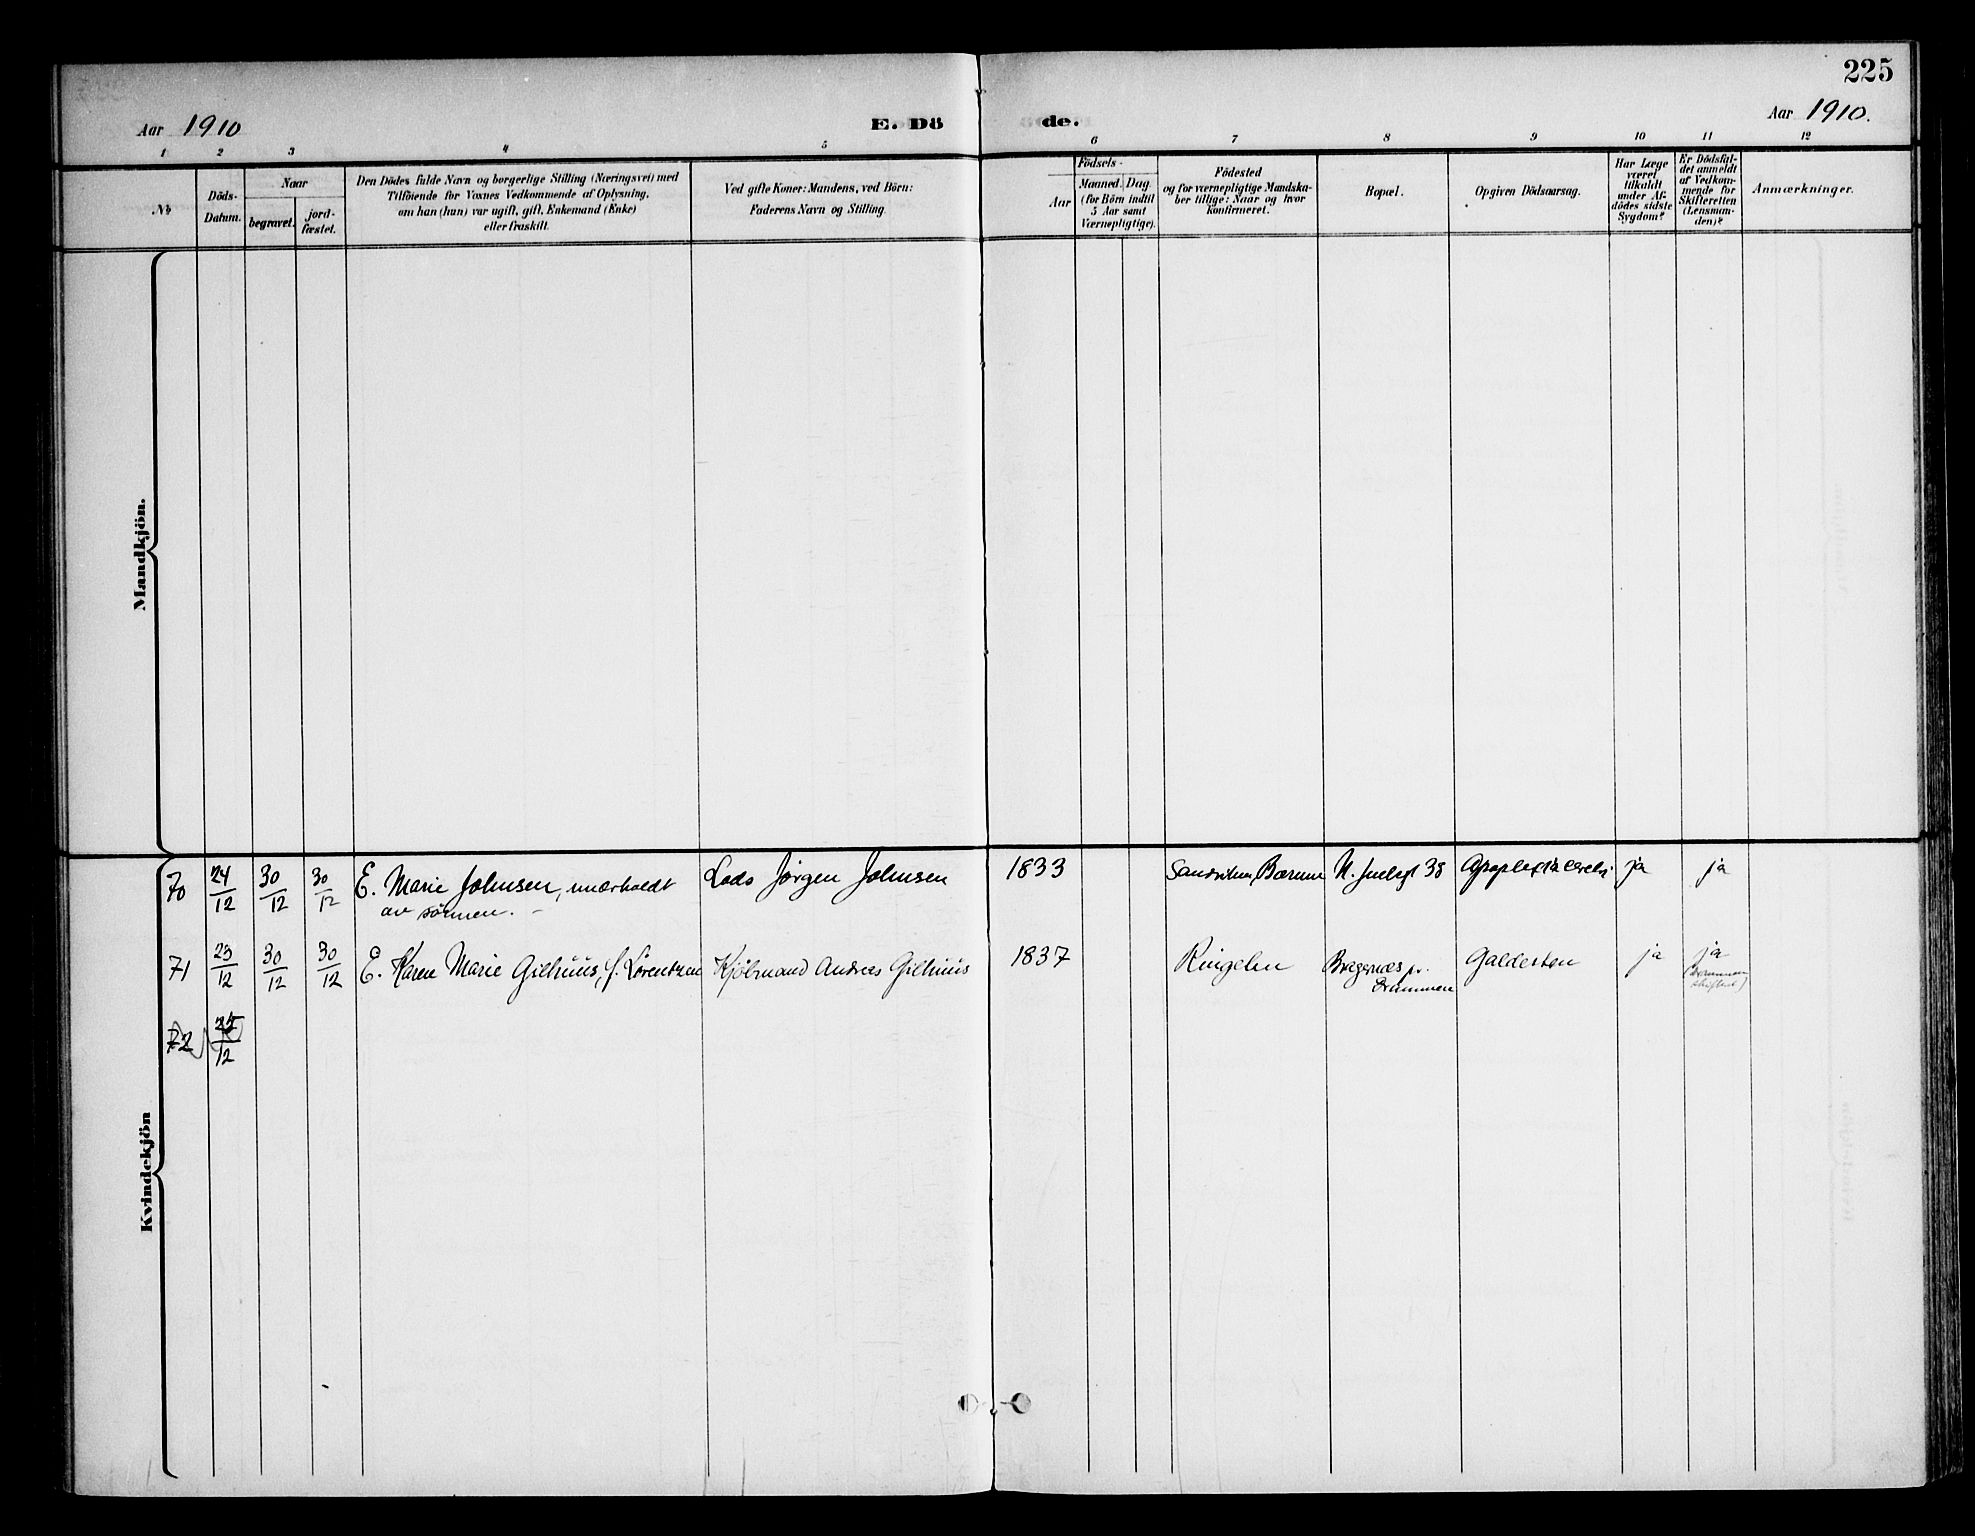 225
Aar 1910
E. Dö
de.
Aar 1910.
1 2 3 4 5 6 7 8 9 10 11 12
No
Döds-
Datum.
Naar
begravet.
jord-
fæstet.
Den Dödes fulde Navn og borgerlige Stilling (Næringsvei) med
Tilföiende for Voxnes Vedkommende af Oplysning,
om han (hun) var ugift, gift, Enkemand (Enke)
eller fraskilt.
Ved gifte Koner: Mandens, ved Börn:
Faderens Navn og Stilling.
Födsels-
Aar
Maaned. Dag
(for Börn indtil
5 Aar samt
Værnepligtige).
Födested
og for værnepligtige Mandska-
ber tillige: Naar og hvor
konfirmeret.
Bopæl.
Opgiven Dödsaarsag.
Har Læge
været
tilkaldt
under Af-
dödes sidste
Sygdom?
Er Dödsfal-
det anmeldt
af Vedkom-
mende for
Skifteretten
(Lensman-
den)?
Anmærkninger.
Mandkjön.
Kvindekjön
70 24/12 30/12 30/12 E. Marie Johnsen, underholdt Lods Jörgen Johnsen 1833 Bærum 38 ja ja
av sönnen.
71 23/12 30/12 30/12 E. Karen Marie Gilhuus, f. Lorentzen Andreas Gilhuus 1837 Galdesten ja ja
Bragernes pr.
Drammen
(Drammen
skifteret)
72 /12